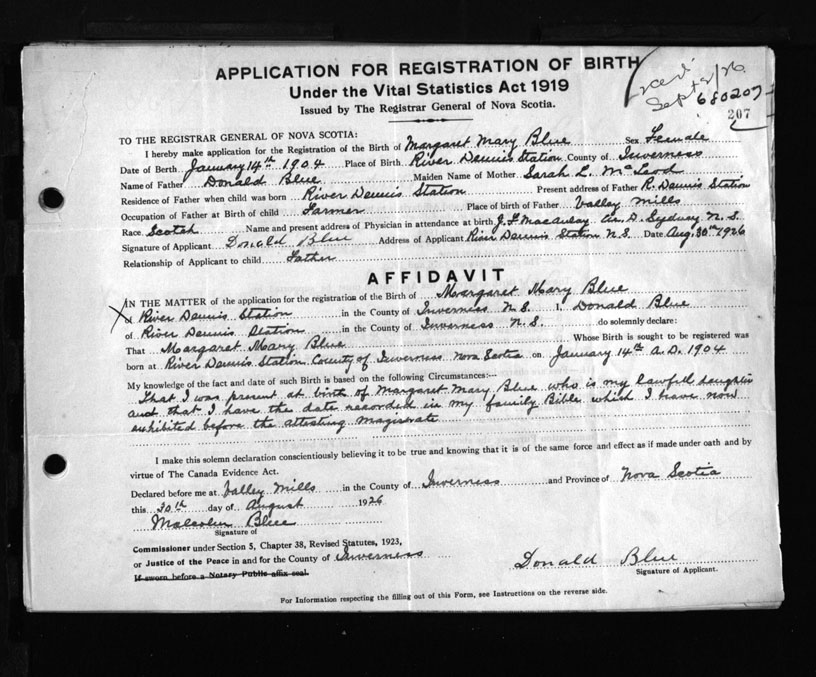 APPLICATION FOR REGISTRATION OF BIRTH
Under the Vital Statistics Act 1919
Issued by The Registrar General of Nova Scotia.
Sept
680207
207
TO THE REGISTRAR GENERAL OF NOVA SCOTIA:
I hereby make application for the Registration of the Birth of Margaret Mary Blue Sex Female
Date of Birth January 14th 1904 Place of Birth River Dennis Station County of Inverness
Name of Father Donald Blue Maiden Name of Mother Sarah L. McLeod
Residence of Father when child was born River Dennis Station Present address of Father R. Dennis Station
Occupation of Father at Birth of child Farmer Place of birth of Father Valley Mills
Race Scotch Name and present address of Physician in attendance at birth J. F. Macaulay M. D. Sydney N. S.
Signature of Applicant Donald Blue Address of Applicant River Dennis Station N. S. Date Aug. 30th 1926
Relationship of Applicant to child Father
AFFIDAVIT
IN THE MATTER of the application for the registration of the Birth of Margaret Mary Blue
River Dennis Station in the County of Inverness N. S. I, Donald Blue
of River Dennis Station in the County of Inverness N. S. do solemnly declare:
That Margaret Mary Blue Whose Birth is sought to be registered was
born at River Dennis Station County of Inverness Nova Scotia on January 14th A. D. 1904
My knowledge of the fact and date of such Birth is based on the following Circumstances:—
That I was present at birth of Margaret Mary Blue who is my lawfull daughter
and that I have the date recorded in my family Bible which I have now
exhibited before the attesting magistrate
I make this solemn declaration conscientiously believing it to be true and knowing that it is of the same force and effect as if made under oath and by
virtue of The Canada Evidence Act.
Declared before me at Valley Mills in the County of Inverness and Province of Nova Scotia
this 30th day of August 1926
Malcolm Blue
Signature of
Commissioner under Section 5, Chapter 38, Revised Statutes, 1923,
or Justice of the Peace in and for the County of Inverness
If sworn before a Notary Public affix seal.
Donald Blue
Signature of Applicant.
For Information respecting the filling out of this Form, see Instructions on the reverse side.